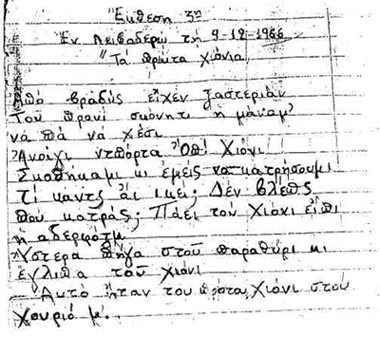 Ἔκθεση 3η
Ἐν Λειβαδερῷ τῇ 9-12-1966
"Τα πρώτα χιόνια
Ἀπό βραδύς εἶχεν ξαστεριάν
Τού πρανί σκόνητι ἡ μάναμ'
νά πά νά χέσι
Ἀνοίγι ντπόρτα Ὀπ! Χιόνι
Σκοθήκαμι κι ἐμείς να κατρήσουμι
Τί καντς ἀϊ ικεί; Δέν βλέπς
που κατράς; Πάει τού χιόνι εἶπι
ἡ αδερφότμ
Ὕστερα πῆγα στοῦ παραθύρι κι
ἔγλιπα τοῦ χιόνι
Αυτό ἦταν του πρώτα χιόνι στού
χουριό μ'.